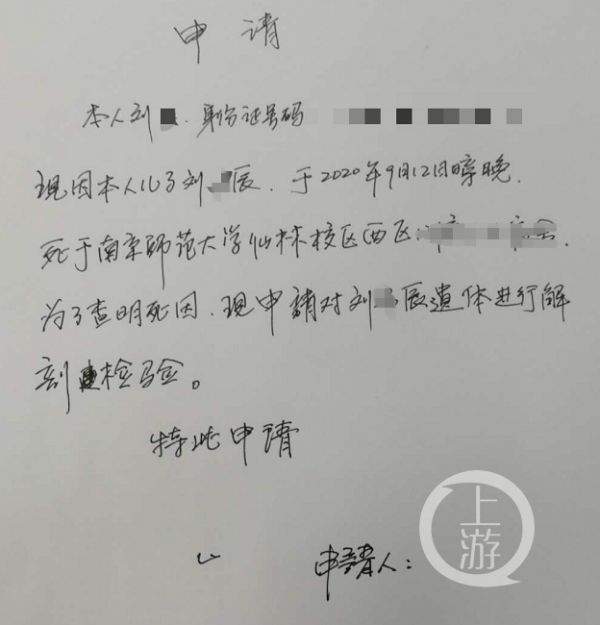 申请
本人刘 . 身份证号码
现因本人儿子刘 辰. 于2020年9月12日晚
死于南京师范大学仙林校区西区
为了查明死因、现申請对刘 辰遗体进行解
剖 检验。
特此申请
申请人:
上游